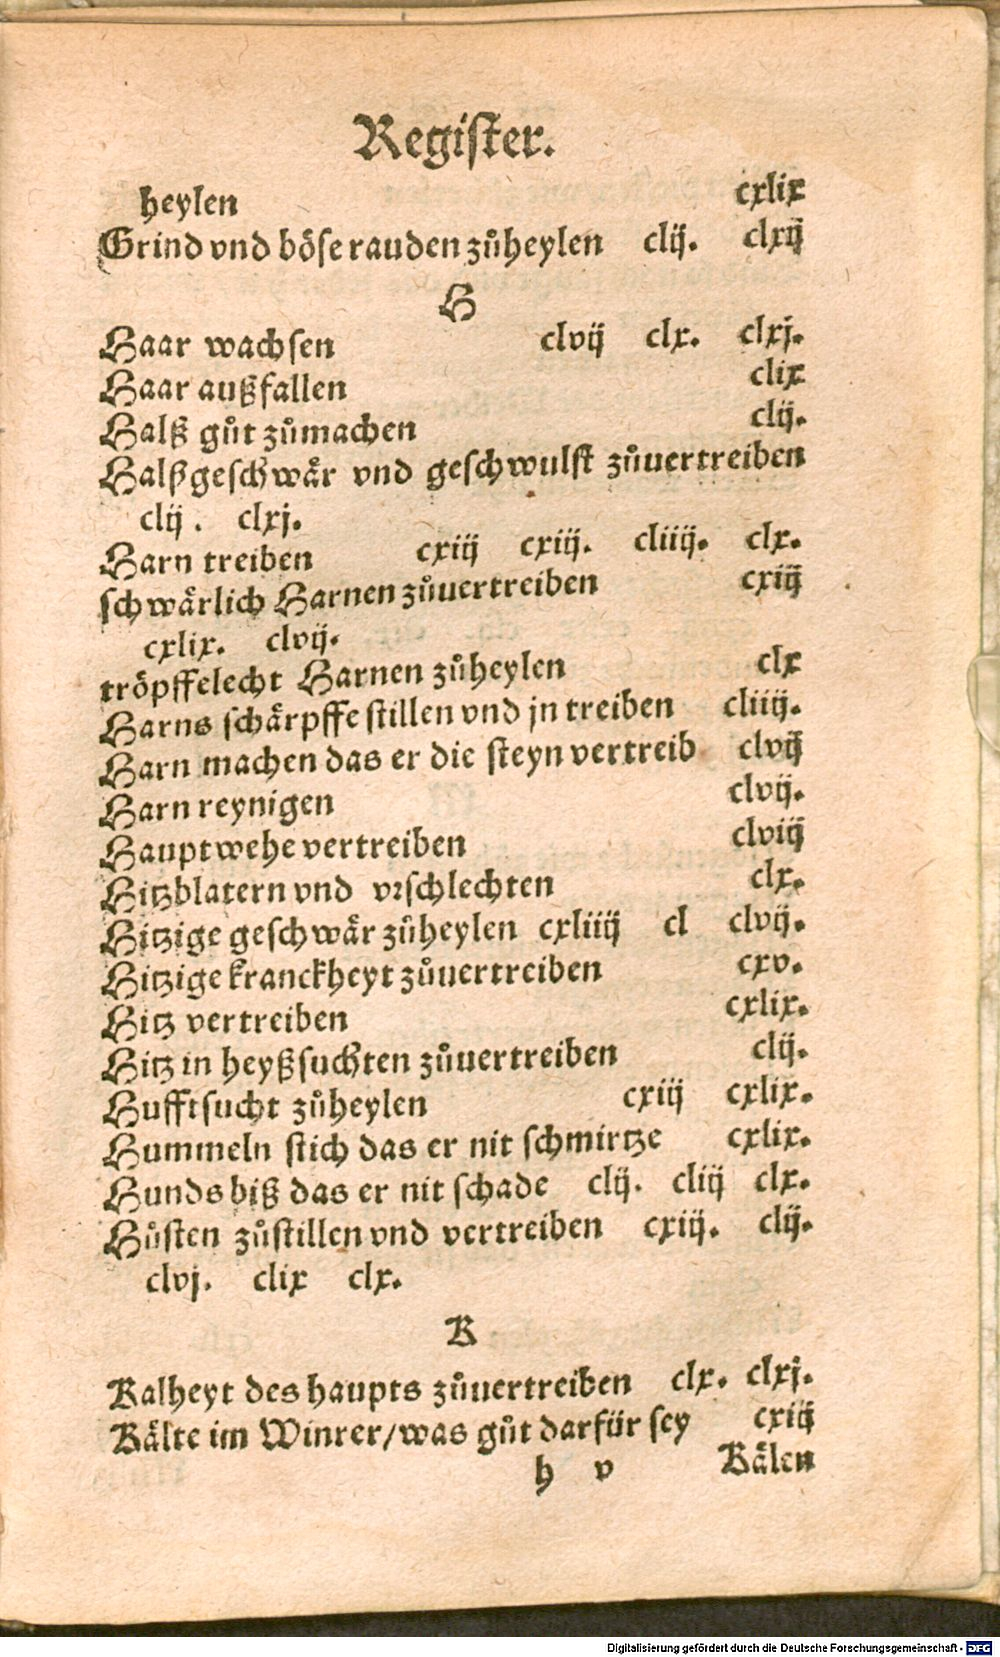 Register.
heylen cxlix
Grind vnd böse rauden zůheylen clij. clxij
H
Haar wachsen clvij clx. clxj.
Haar außfallen clix
Halß gůt zůmachen clij.
Halßgeschwär vnd geschwulst zůuertreiben
clij. clxj.
Harn treiben cxiij cxiij. cliiij. clx.
schwärlich Harnen zůuertreiben cxiij
cxlix. clvij.
tröpffelecht Harnen zůheylen clx
Harns schärpffe stillen vnd jn treiben cliiij.
Harn machen das er die steyn vertreib clvij
Harn reynigen clvij.
Hauptwehe vertreiben clviij
Hitzblatern vnd vrschlechten clx.
Hitzige geschwär zůheylen cxliiij cl clvij.
Hitzige kranckheyt zůuertreiben cxv.
Hitz vertreiben cxlix.
Hitz in heyßsuchten zůuertreiben clij.
Hufftsucht zůheylen cxiij cxlix.
Hummeln stich das er nit schmirtze cxlix.
Hunds biß das er nit schade clij. cliij clx.
Hůsten zůstillen vnd vertreiben cxiij. clij.
clvj. clix clx.
K
Kalheyt des haupts zůuertreiben clx. clxj.
Kälte im Winter/was gůt darfür sey cxiij
h v Kälen
Digitalisierung gefördert durch die Deutsche Forschungsgemeinschaft - DFG